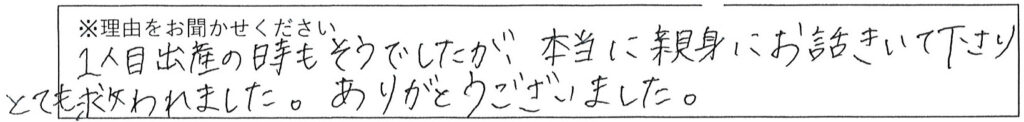 ※理由をお聞かせください
1人目出産の時もそうでしたが、本当に親身にお話きいて下さり
とても救われました。ありがとうございました。